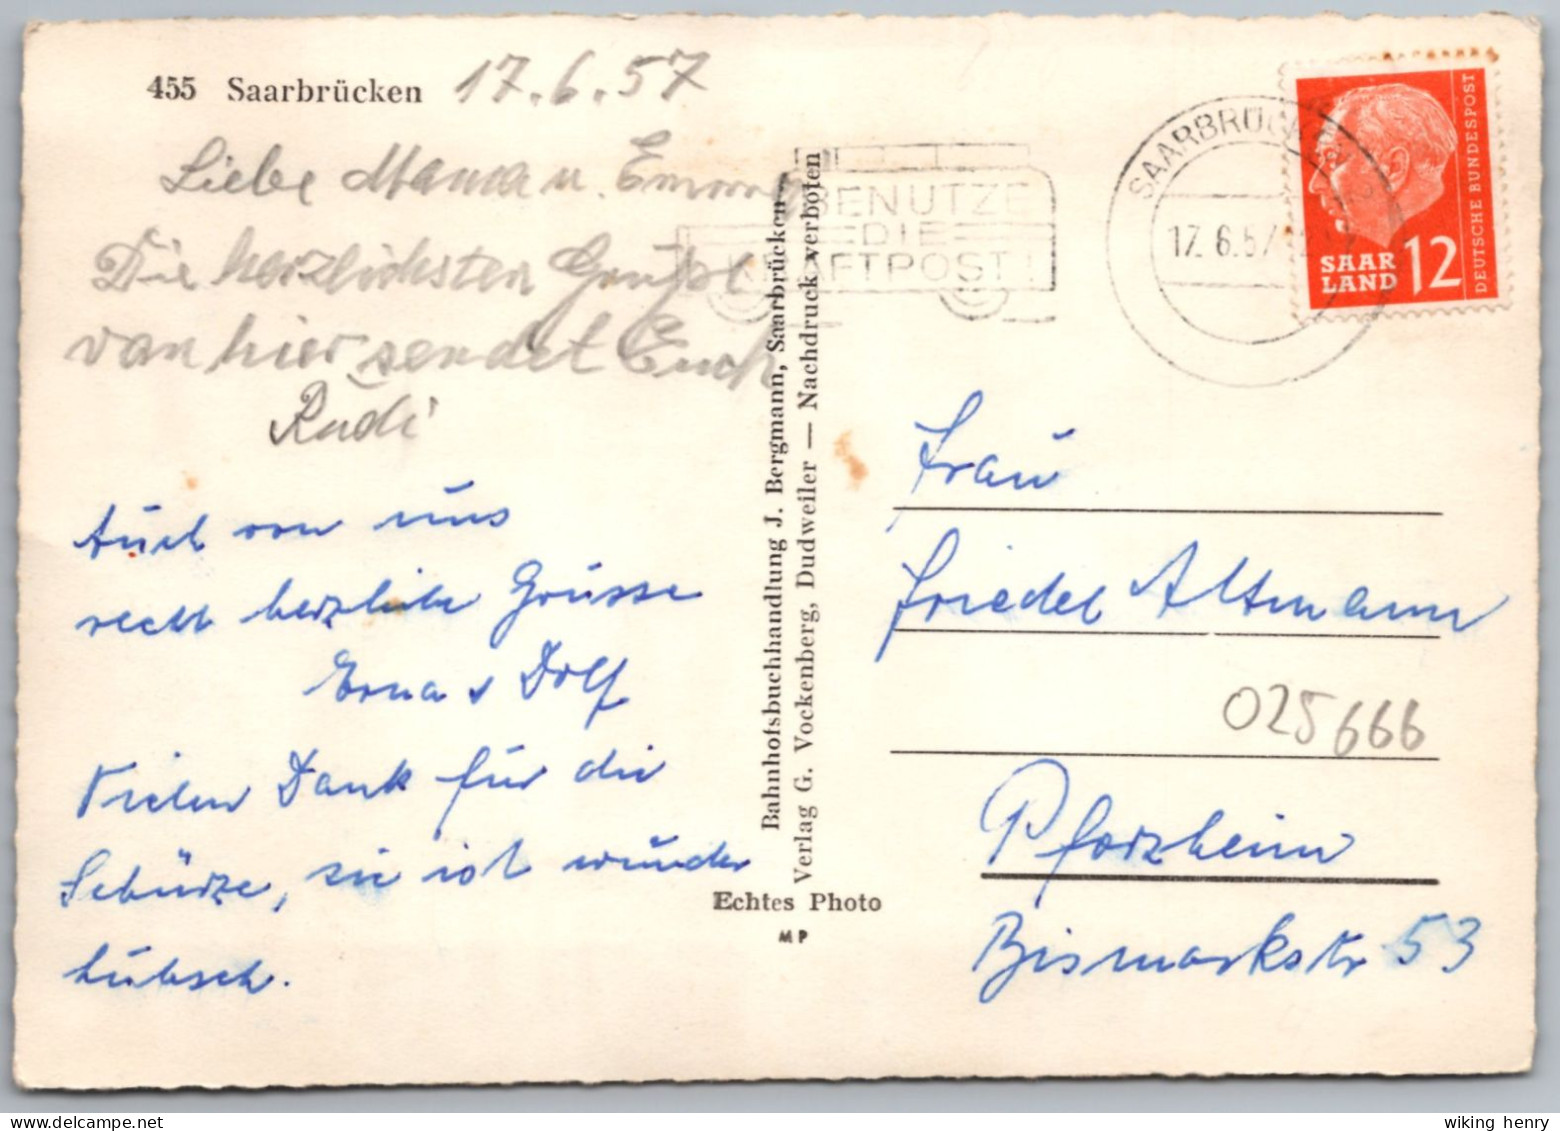 455 Saarbrücken 17.6.57
Liebe Mama u.
Die herzlichsten Grüße
von hier sendet Euch
Rudi
Auch von uns
recht herzliche Grüsse
Erna & Dolf
Vielen Dank für die
Schürze, sie ist wunder
hübsch.
Bahnhofsbuchhandlung J. Bergmann, Saarbrücken
Verlag G. Vockenberg, Dudweiler — Nachdruck verboten
Echtes Photo
MP
BENUTZE
DIE
KRAFTPOST!
SAARBRÜCKEN 2
17.6.57
SAAR
LAND 12
DEUTSCHE BUNDESPOST
Frau
Friedel Altmann
025666
Pforzheim
Bismarkstr 53
wiking henry